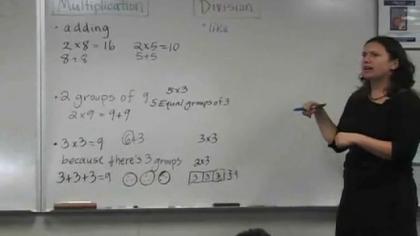 Multiplication
• adding
2 x 8 = 16   2 x 5 = 10
8 + 8   5 + 5
• 2 groups of 9
2 x 9 = 9 + 9
5 x 3
5 Equal groups of 3
• 3 x 3 = 9   6 + 3   3 x 3
because there's 3 groups   2 x 3
3 + 3 + 3 = 9   3 3 3
Division
• like